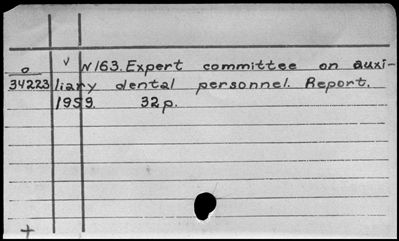 v N163. Expert committee on auxi-
o
34223 liary dental personnel. Report.
1959. 32p.
+